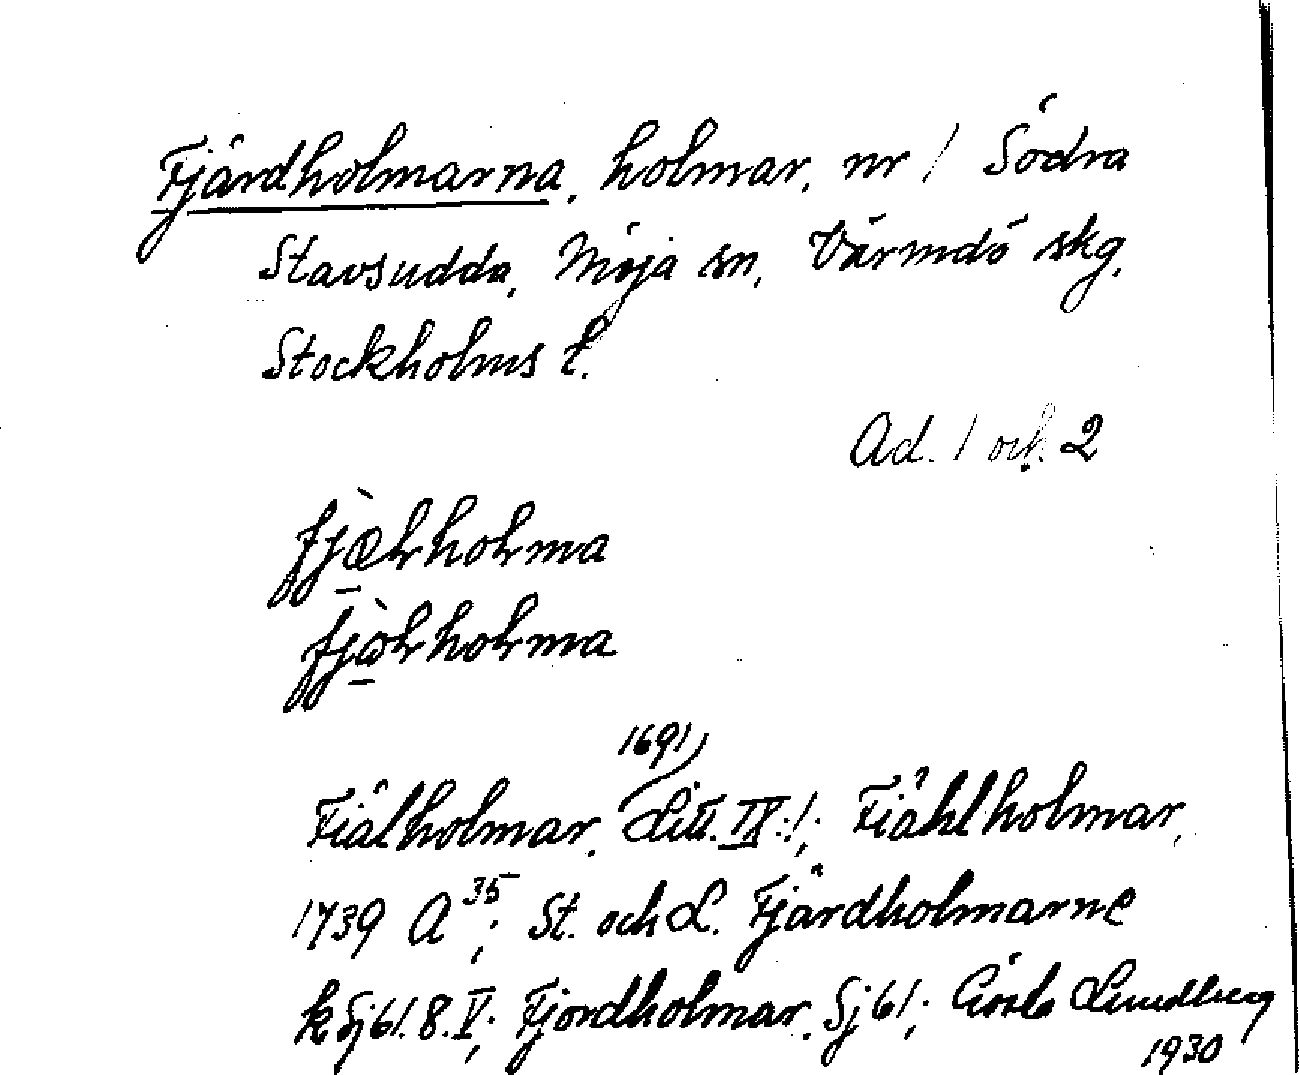 Fjärdholmarna, holmar, nr 1 Södra
Stavsudda, Möja sn, Värmdö skg,
Stockholms l.
Ad. 1 och 2
fjæ̀ꞎhoꞎma
fjòꞎhoꞎma
1691
Fiälholmar, Litt. IX:1; Fiählholmar,
1739 A 35; St. och L. Fjärdholmarne
k Sj61.8.V; Fjordholmar, Sj61; Gösta Lundberg
1930